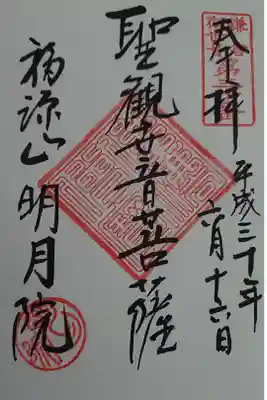 奉拝
平成三十年
六月十六日
聖観世音菩薩
福源山明月院